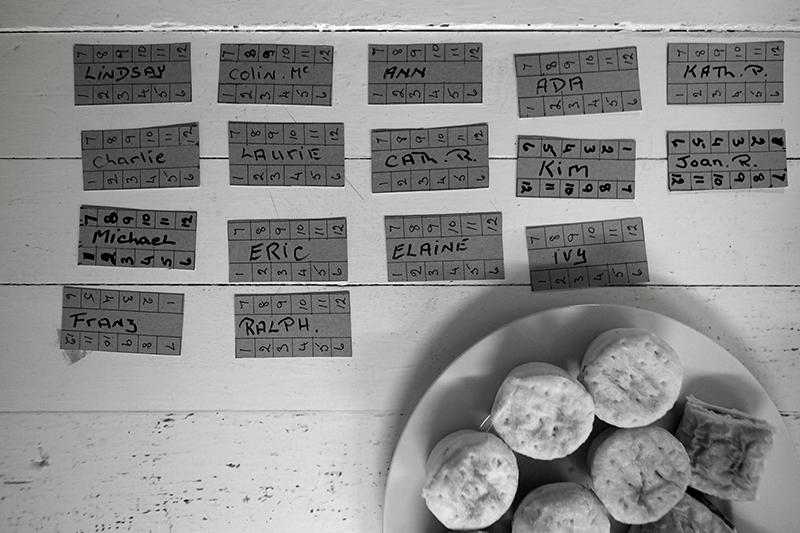 7 8 9 10 11 12
LINDSAY
1 2 3 4 5 6
7 8 9 10 11 12
COLIN. Mc
1 2 3 4 5 6
7 8 9 10 11 12
ANN
1 2 3 4 5 6
7 8 9 10 11 12
ADA
1 2 3 4 5 6
7 8 9 10 11 12
KATH. P.
1 2 3 4 5 6
7 8 9 10 11 12
Charlie
1 2 3 4 5 6
7 8 9 10 11 12
LAURIE
1 2 3 4 5 6
7 8 9 10 11 12
CATH. R.
1 2 3 4 5 6
6 5 4 3 2 1
Kim
12 11 10 9 8 7
6 5 4 3 2 1
Joan. R.
12 11 10 9 8 7
7 8 9 10 11 12
Michael
1 2 3 4 5 6
7 8 9 10 11 12
ERIC
1 2 3 4 5 6
7 8 9 10 11 12
ELAINE
1 2 3 4 5 6
7 8 9 10 11 12
IVY
1 2 3 4 5 6
6 5 4 3 2 1
FRANZ
12 11 10 9 8 7
7 8 9 10 11 12
RALPH.
1 2 3 4 5 6